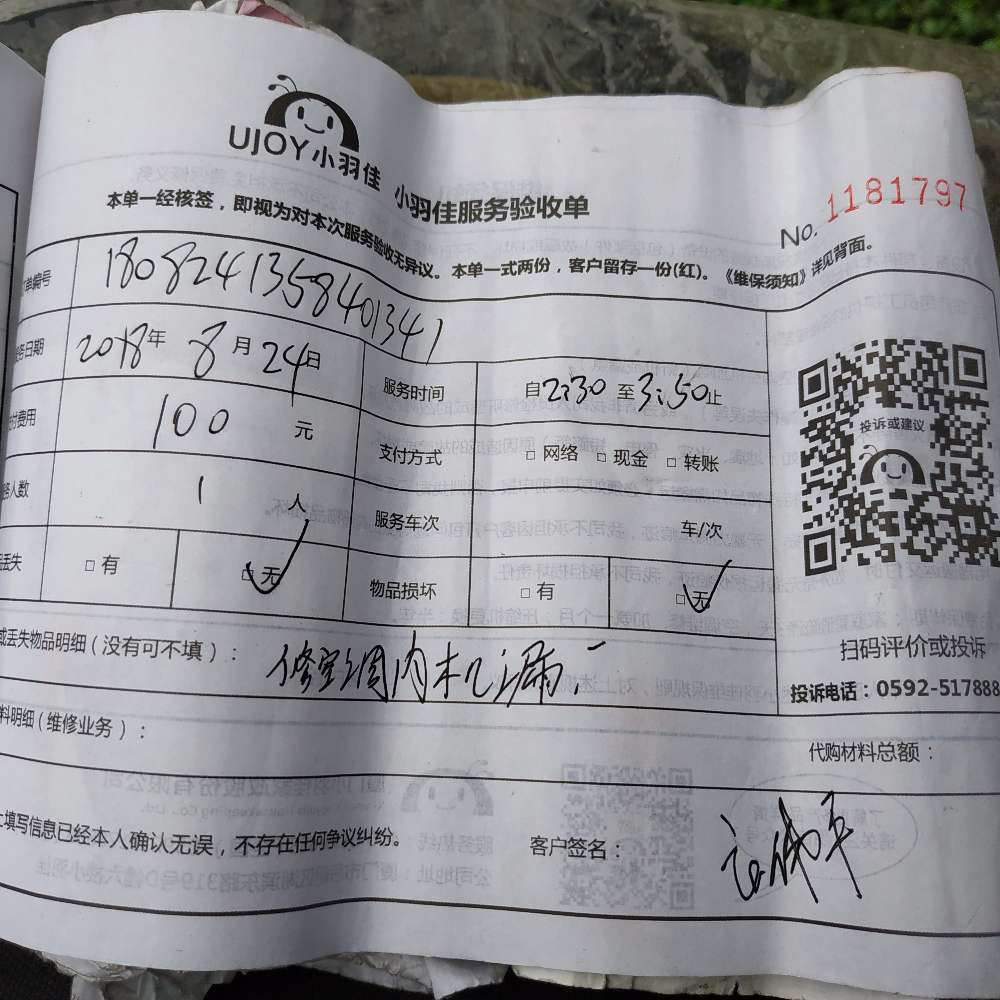 UJOY小羽佳
小羽佳服务验收单
No. 1181797
本单一经核签，即视为对本次服务验收无异议。本单一式两份，客户留存一份(红)。《维保须知》详见背面。
单编号 1808241358401341
务日期 2018年 8月24日 服务时间 自2:30至3:50止
付费用 100 元 支付方式 □网络 □现金 □转账
务人数 1 人 服务车次 车/次
品丢失 □有 □无 物品损坏 □有 □无
或丢失物品明细(没有可不填)： 修空调内机漏
料明细(维修业务)：
代购材料总额：
上填写信息已经本人确认无误，不存在任何争议纠纷。 客户签名：
投诉或建议
扫码评价或投诉
投诉电话：0592-517888